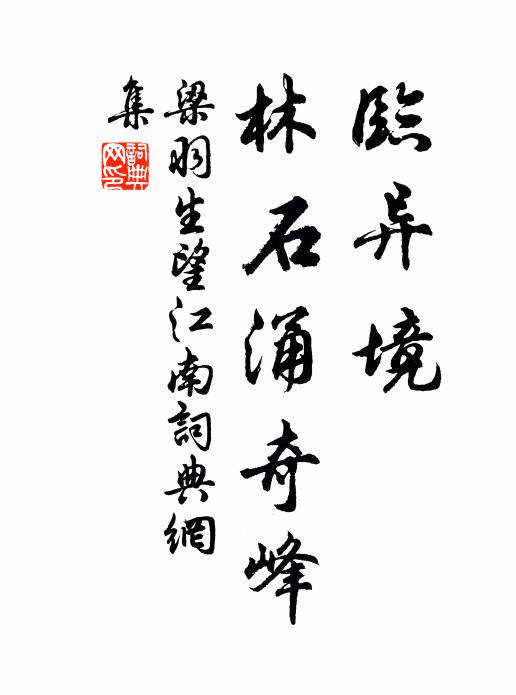 臨异境
林石涌奇峰
梁羽生望江南詞典網
集
詞典网印